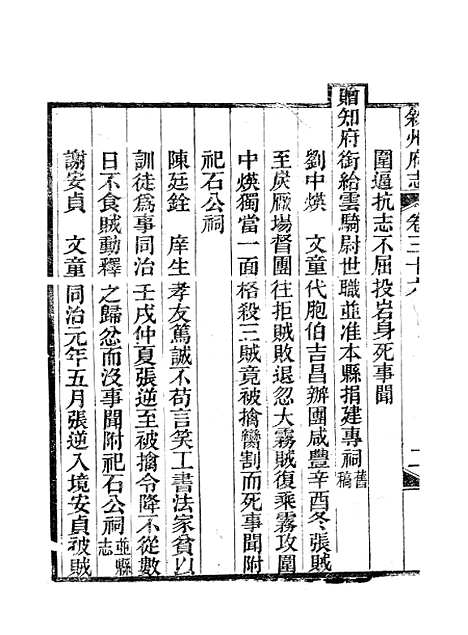 敘州府志 卷三十六
圍逼抗志不屈投岩身死事聞
贈知府銜給雲騎尉世職並准本縣捐建專祠 舊稿
劉中煐 文童代胞伯吉昌辦團咸豐辛酉冬張賊
至炭厰場督團往拒賊敗退忽大霧賊復乘霧攻圍
中煐獨當一面格殺三賊竟被擒臠割而死事聞附
祀石公祠
陳廷銓 庠生孝友篤誠不苟言笑工書法家貧以
訓徒爲事同治壬戌仲夏張逆至被擒令降不從數
日不食賊動釋之歸忿而沒事聞附祀石公祠 並縣志
謝安貞 文童同治元年五月張逆入境安貞被賊